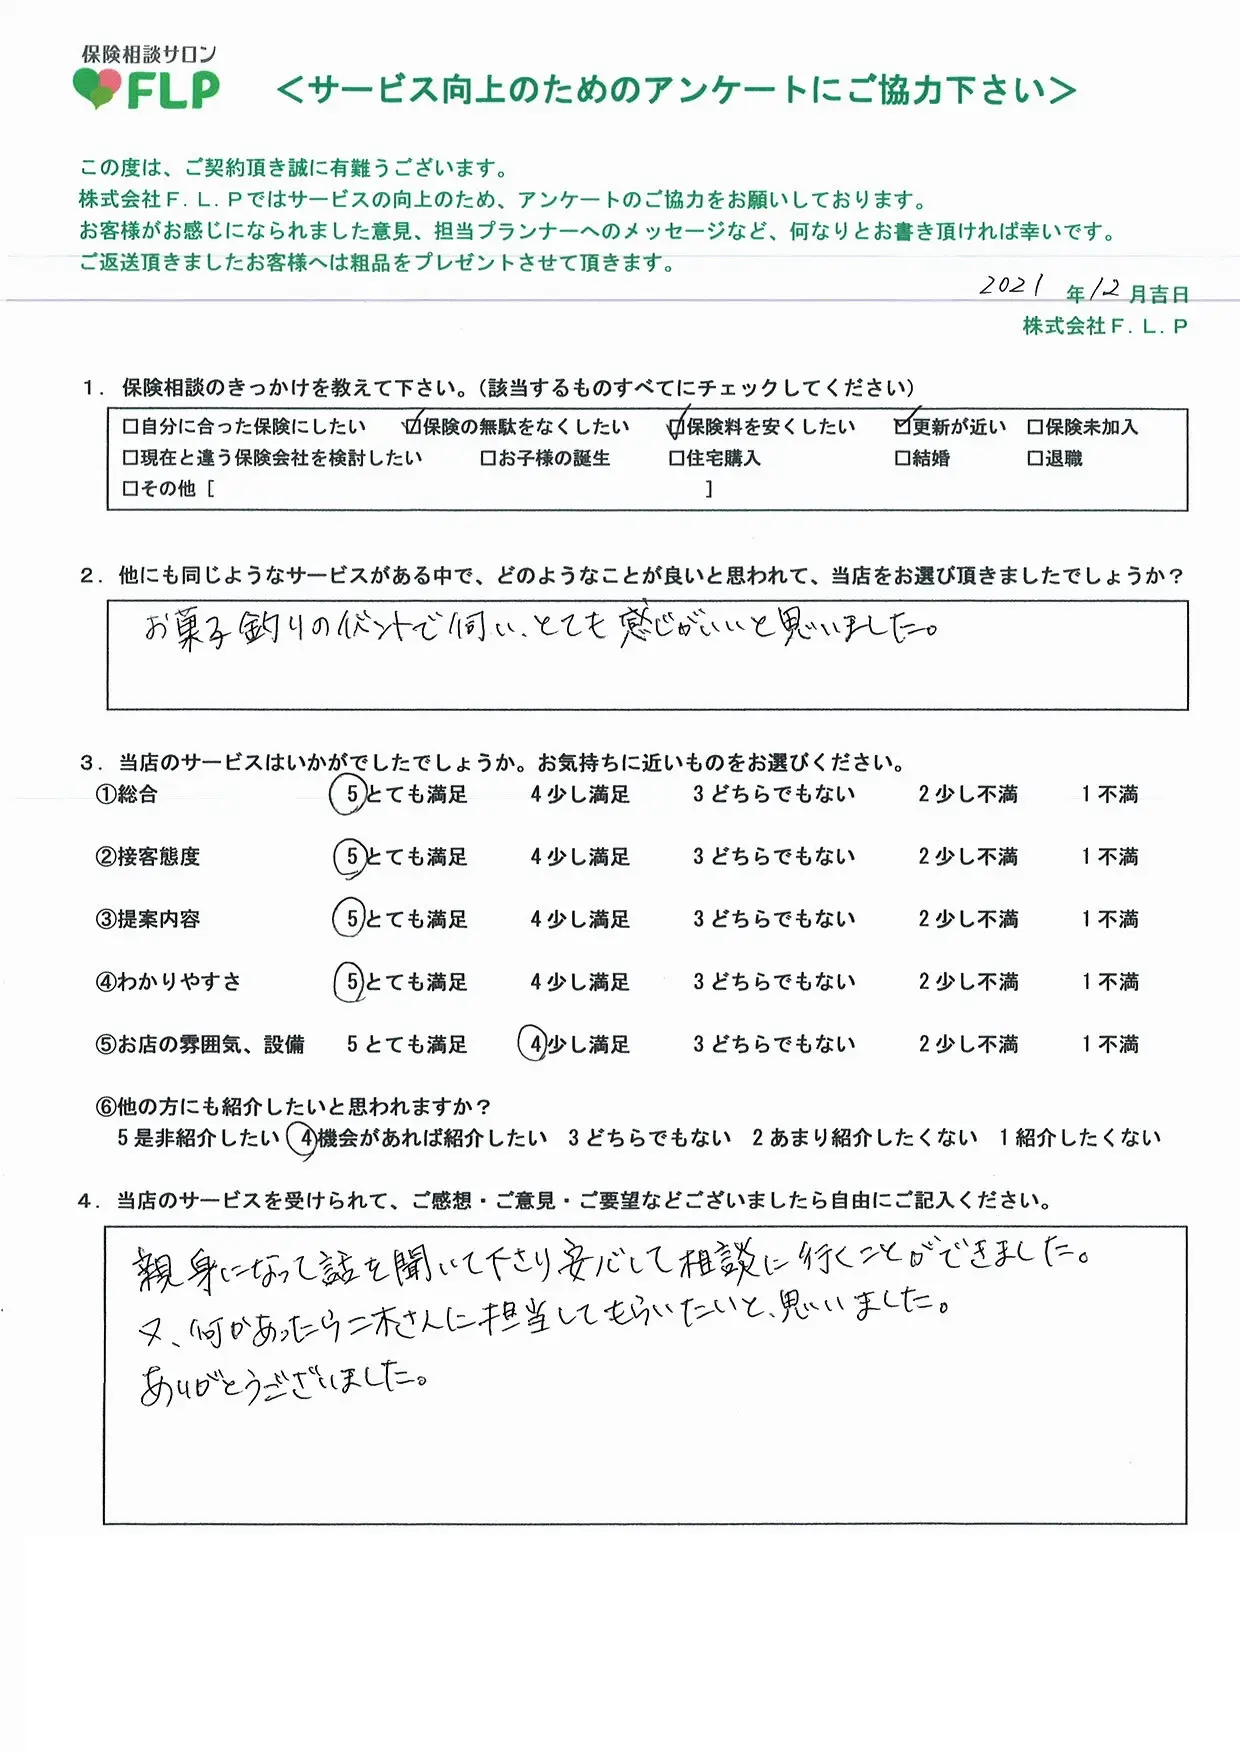 保険相談サロン
FLP
＜サービス向上のためのアンケートにご協力下さい＞
この度は、ご契約頂き誠に有難うございます。
株式会社Ｆ．Ｌ．Ｐではサービスの向上のため、アンケートのご協力をお願いしております。
お客様がお感じになられました意見、担当プランナーへのメッセージなど、何なりとお書き頂ければ幸いです。
ご返送頂きましたお客様へは粗品をプレゼントさせて頂きます。
2021 年 12 月吉日
株式会社Ｆ．Ｌ．Ｐ
１．保険相談のきっかけを教えて下さい。（該当するものすべてにチェックしてください）
□自分に合った保険にしたい ☑保険の無駄をなくしたい ☑保険料を安くしたい ☑更新が近い □保険未加入
□現在と違う保険会社を検討したい □お子様の誕生 □住宅購入 □結婚 □退職
□その他［ ］
２．他にも同じようなサービスがある中で、どのようなことが良いと思われて、当店をお選び頂きましたでしょうか？
お菓子釣りのイベントで伺い、とても感じがいいと思いました。
３．当店のサービスはいかがでしたでしょうか。お気持ちに近いものをお選びください。
①総合 5とても満足 4少し満足 3どちらでもない 2少し不満 1不満
②接客態度 5とても満足 4少し満足 3どちらでもない 2少し不満 1不満
③提案内容 5とても満足 4少し満足 3どちらでもない 2少し不満 1不満
④わかりやすさ 5とても満足 4少し満足 3どちらでもない 2少し不満 1不満
⑤お店の雰囲気、設備 5とても満足 4少し満足 3どちらでもない 2少し不満 1不満
⑥他の方にも紹介したいと思われますか？
5是非紹介したい 4機会があれば紹介したい 3どちらでもない 2あまり紹介したくない 1紹介したくない
４．当店のサービスを受けられて、ご感想・ご意見・ご要望などございましたら自由にご記入ください。
親身になって話を聞いて下さり安心して相談に行くことができました。
又、何かあったら二木さんに担当してもらいたいと、思いました。
ありがとうございました。